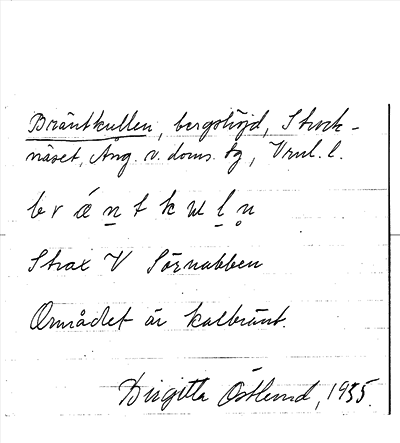 Bräntkullen, bergshöjd, Stock-
näset, Ång. v. doms. tg, Vrml. l.
br ǽ n t k u l n
Strax V Sörnubben
Området är kalbränt.
Birgitta Östlund, 1935